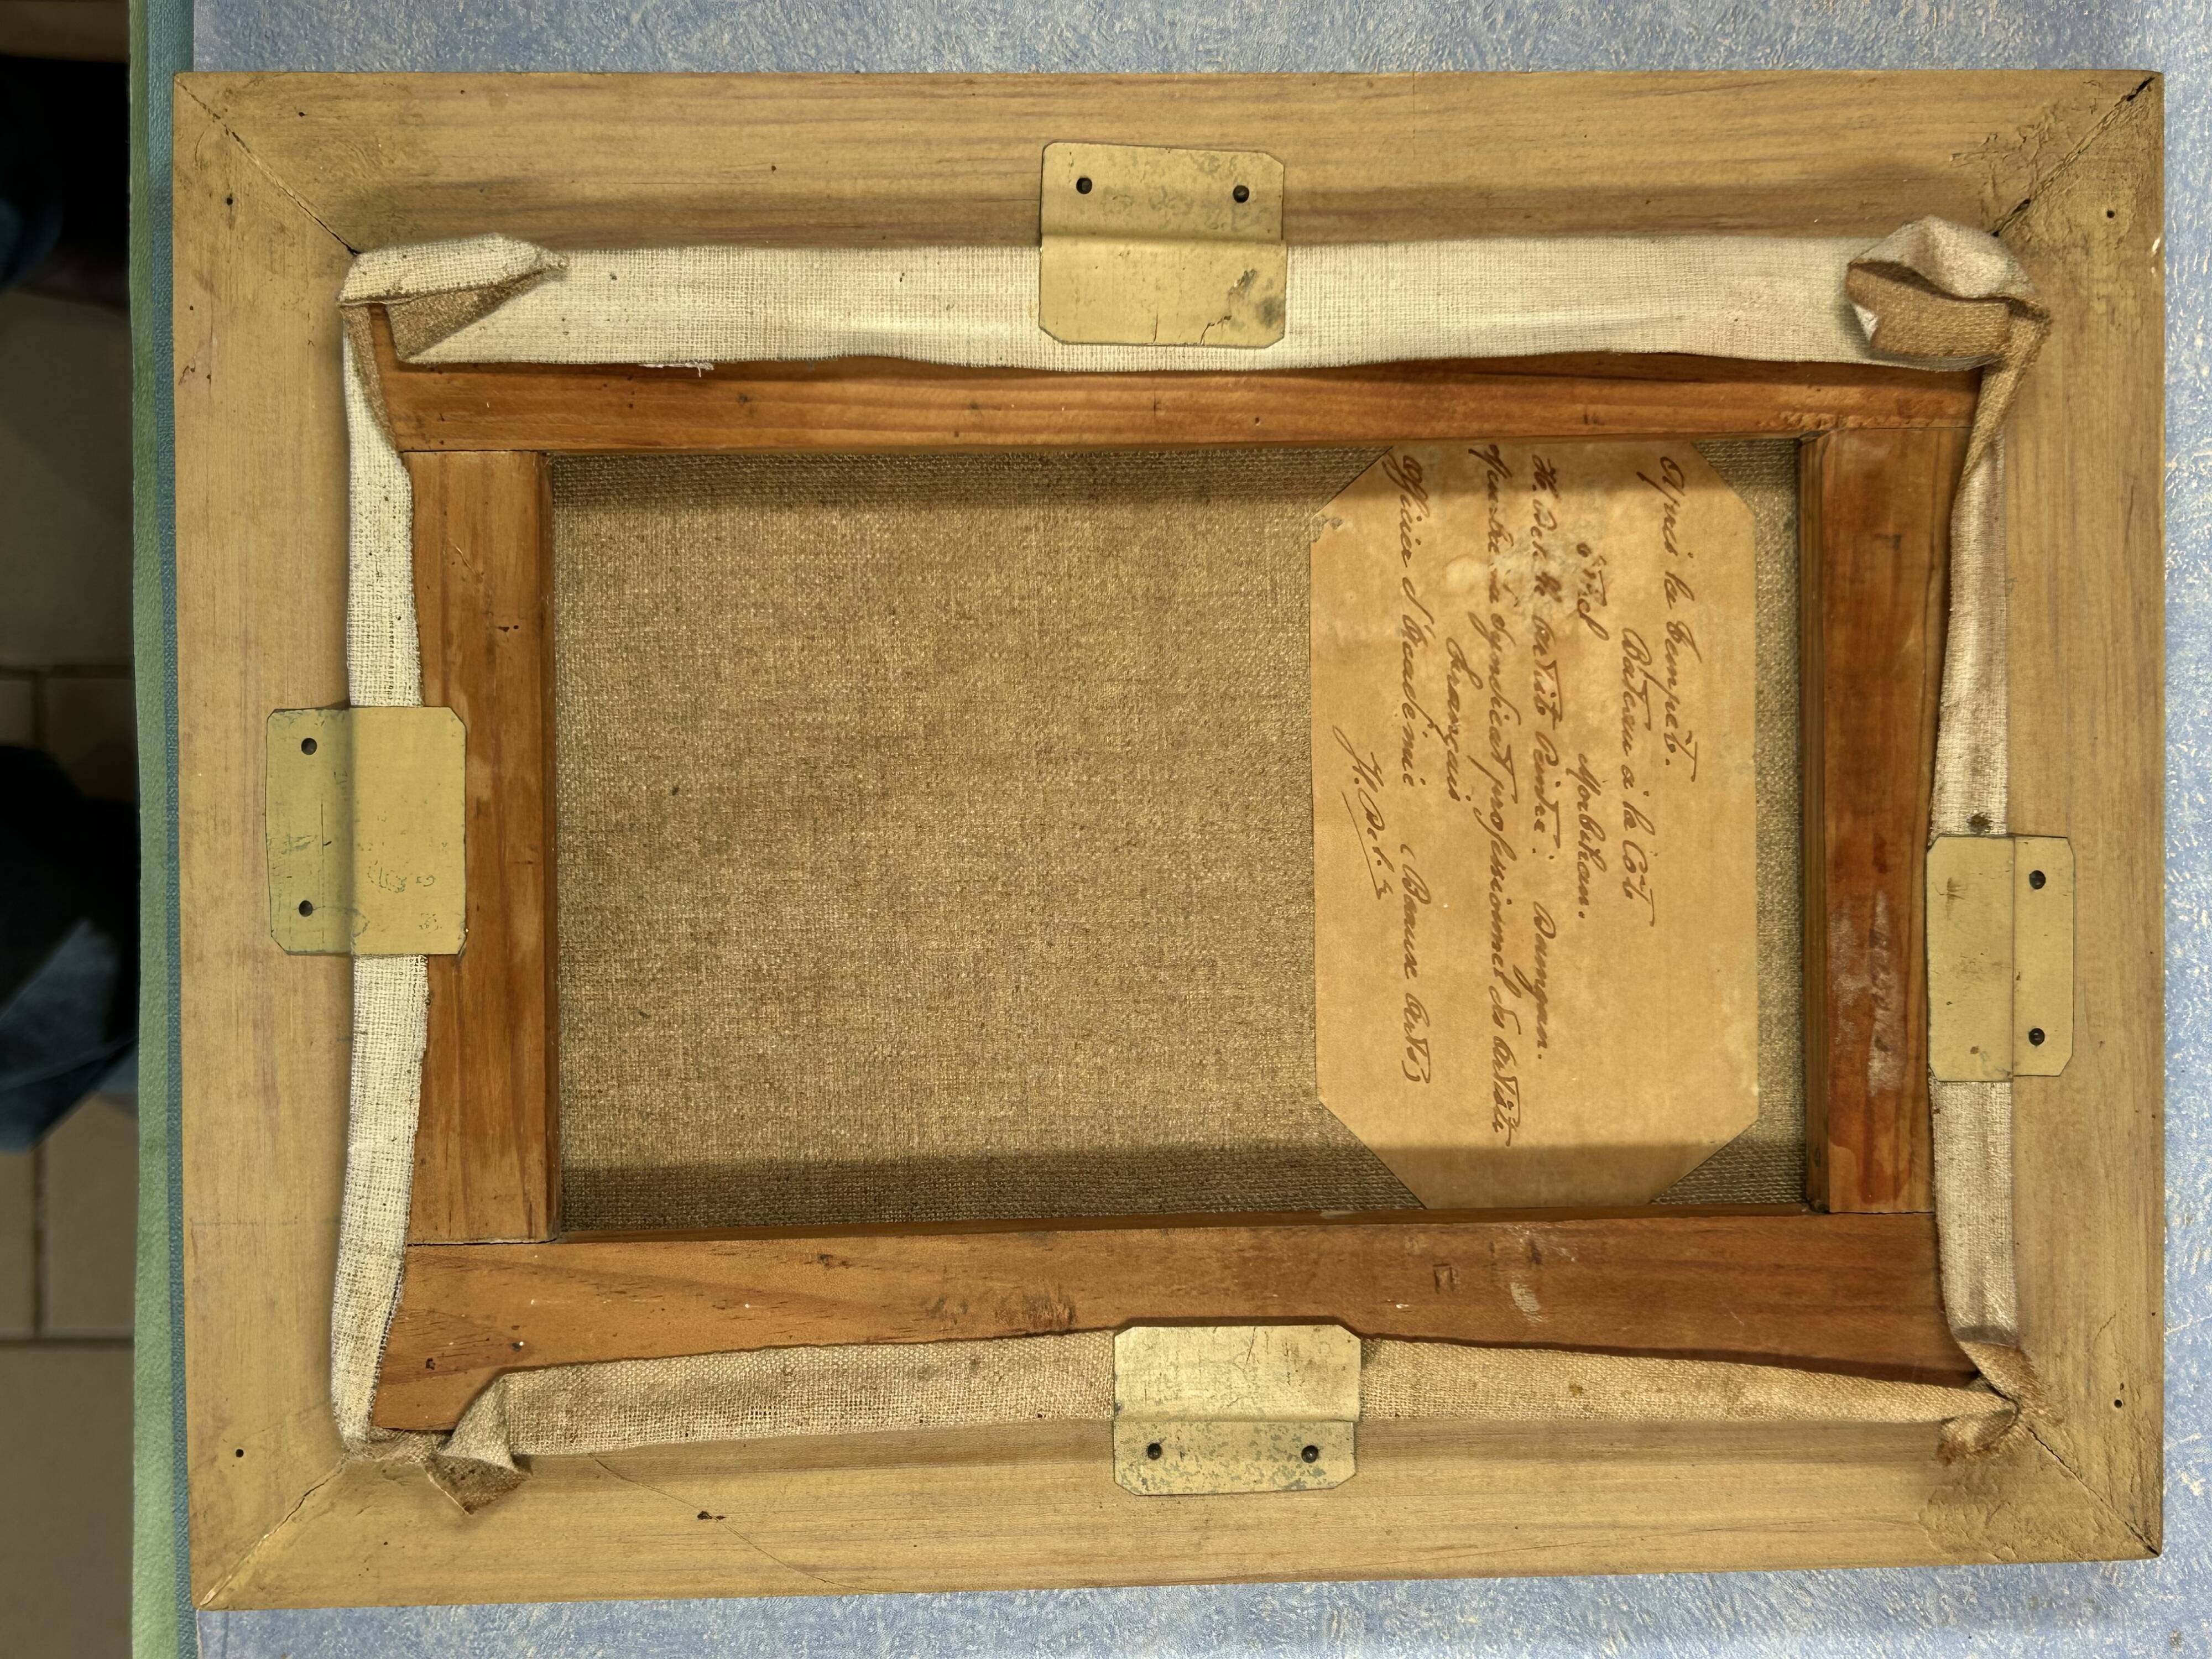 Après la Tempête.
Bateau à la Côte
Etel Morbihan.
artiste Peintre: Damgan.
Membre du Syndicat professionnel des artistes
Français
Officier d'Académie (Beaux Arts)